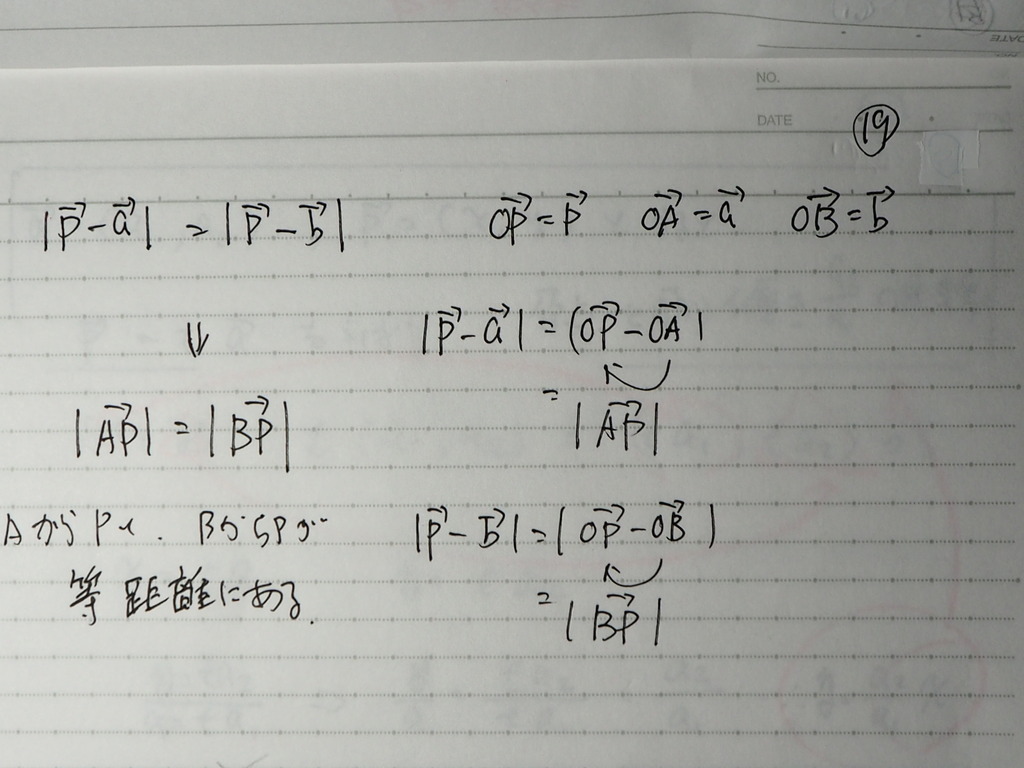 NO.
DATE
⑲
|p⃗-a⃗| = |p⃗-b⃗|
OP⃗=p⃗ OA⃗=a⃗ OB⃗=b⃗
⇓
|p⃗-a⃗| = |OP⃗-OA⃗|
= |AP⃗|
|AP⃗| = |BP⃗|
AからPと、BからPが
等距離にある.
|p⃗-b⃗| = |OP⃗-OB⃗|
= |BP⃗|